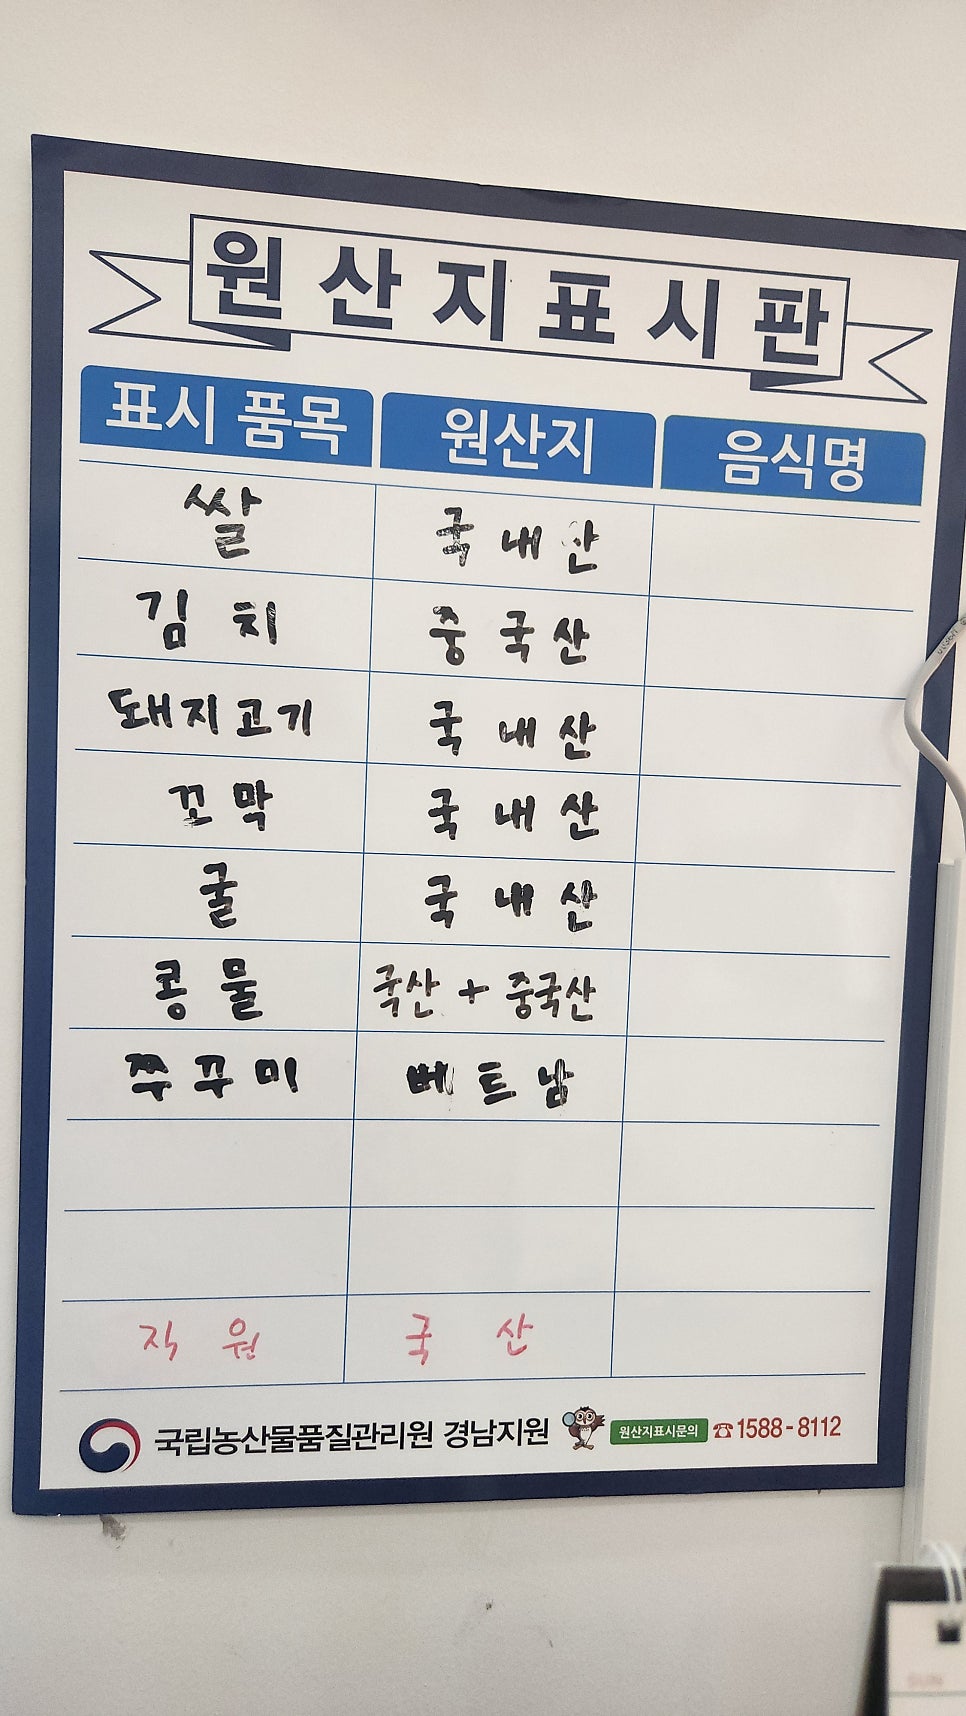 원산지표시판
표시 품목 원산지 음식명
쌀 국내산
김치 중국산
돼지고기 국내산
꼬막 국내산
굴 국내산
콩물 국산 + 중국산
쭈꾸미 베트남
직원 국산
국립농산물품질관리원 경남지원 원산지표시문의 ☎1588-8112
SUN